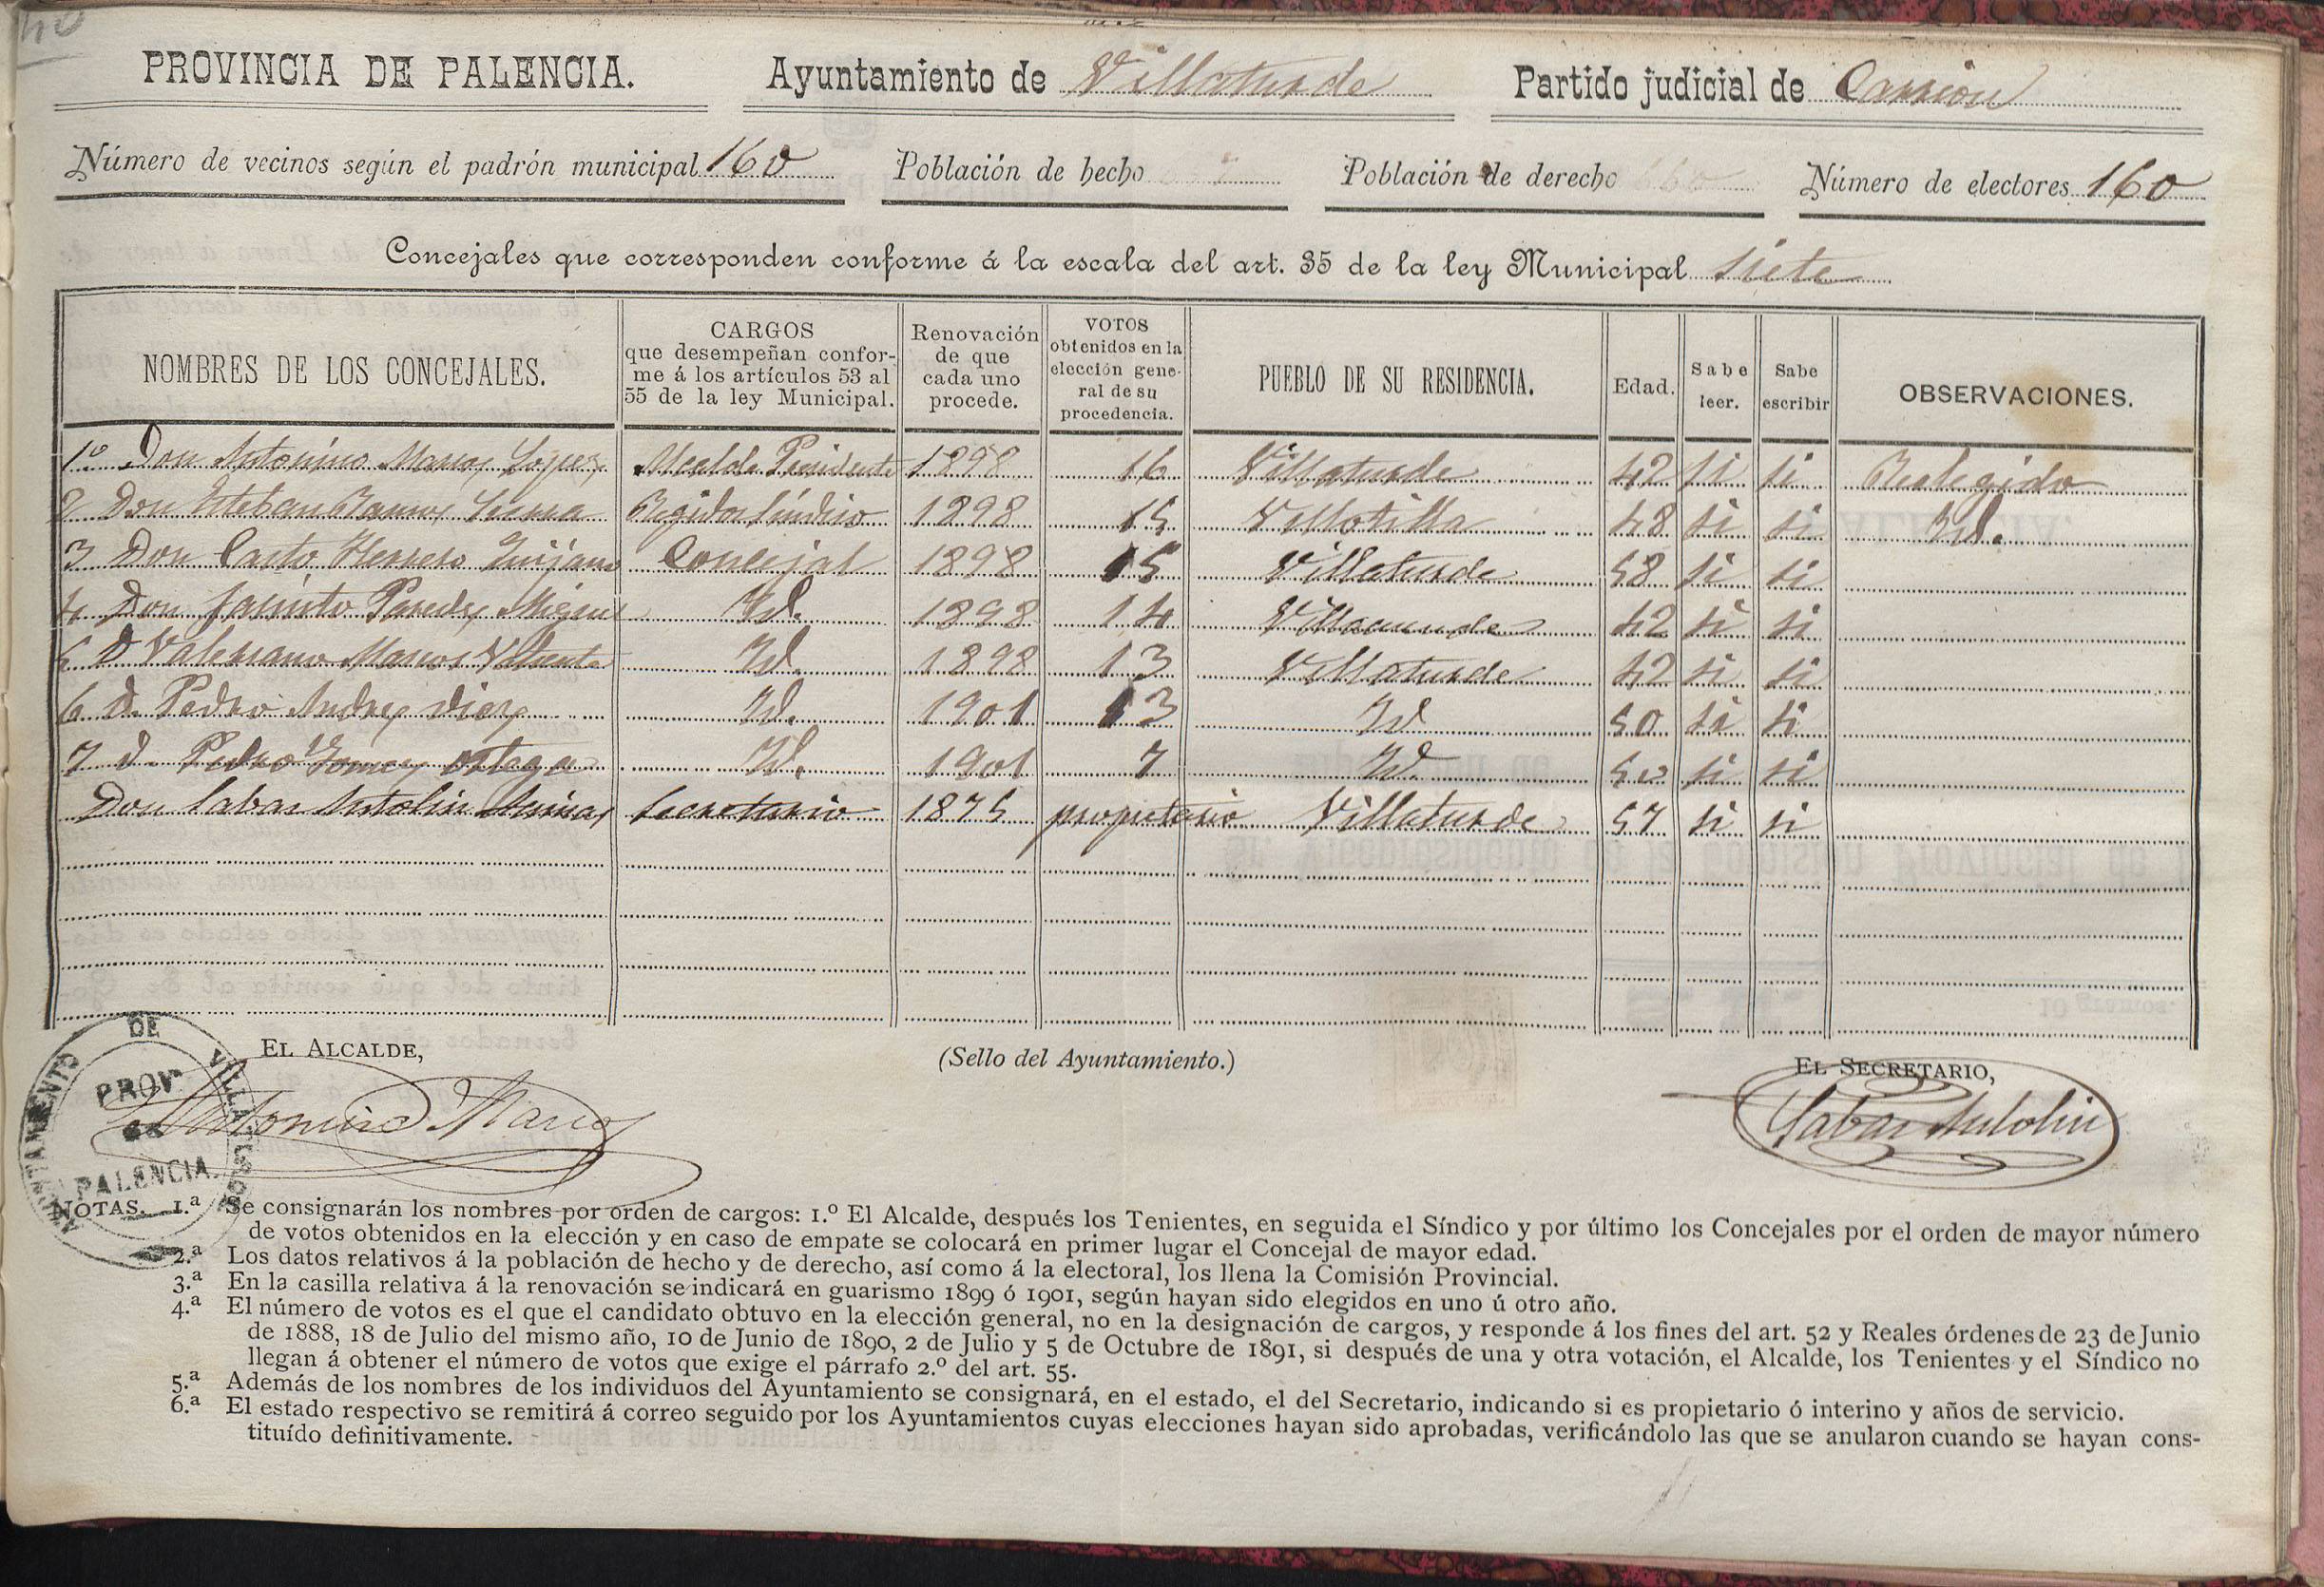 PROVINCIA DE PALENCIA. Ayuntamiento de Villaturde Partido judicial de Carrion
Número de vecinos según el padrón municipal 160 Población de hecho Población de derecho 660 Número de electores 160
Concejales que corresponden conforme á la escala del art. 35 de la ley Municipal siete
NOMBRES DE LOS CONCEJALES.
CARGOS
que desempeñan confor-
me á los artículos 53 al
55 de la ley Municipal.
Renovación
de que
cada uno
procede.
VOTOS
obtenidos en la
elección gene-
ral de su
procedencia.
PUEBLO DE SU RESIDENCIA.
Edad.
Sabe
leer.
Sabe
escribir
OBSERVACIONES.
1º Don Antonino Marcos López Alcalde Presidente 1898 16 Villaturde 42 si si Reelegido
2 Don Esteban Ramos Regidor Síndico 1898 15 Villotilla 48 si si Id.
3 Don Casto Herrero Guijarro Concejal 1898 15 Villaturde 58 si si
4 Don Jacinto Paredes Miguel Id. 1898 14 42 si si
5 D Valeriano Marcos Id. 1898 13 Villaturde 42 si si
6 D. Pedro Andres Diez Id. 1901 13 Id 50 si si
7 D. Pedro Gomez Ortega Id. 1901 7 Id. 50 si si
Don Sabas Antolin Secretario 1875 propietario Villaturde 57 si si
EL ALCALDE, (Sello del Ayuntamiento.) EL SECRETARIO,
Antonino Marcos
Sabas Antolin
AYUNTAMIENTO DE VILLATURDE
PROVª
DE
PALENCIA.
NOTAS. 1.ª Se consignarán los nombres por orden de cargos: 1.º El Alcalde, después los Tenientes, en seguida el Síndico y por último los Concejales por el orden de mayor número
de votos obtenidos en la elección y en caso de empate se colocará en primer lugar el Concejal de mayor edad.
2.ª Los datos relativos á la población de hecho y de derecho, así como á la electoral, los llena la Comisión Provincial.
3.ª En la casilla relativa á la renovación se indicará en guarismo 1899 ó 1901, según hayan sido elegidos en uno ú otro año.
4.ª El número de votos es el que el candidato obtuvo en la elección general, no en la designación de cargos, y responde á los fines del art. 52 y Reales órdenes de 23 de Junio
de 1888, 18 de Julio del mismo año, 10 de Junio de 1890, 2 de Julio y 5 de Octubre de 1891, si después de una y otra votación, el Alcalde, los Tenientes y el Síndico no
llegan á obtener el número de votos que exige el párrafo 2.º del art. 55.
5.ª Además de los nombres de los individuos del Ayuntamiento se consignará, en el estado, el del Secretario, indicando si es propietario ó interino y años de servicio.
6.ª El estado respectivo se remitirá á correo seguido por los Ayuntamientos cuyas elecciones hayan sido aprobadas, verificándolo las que se anularon cuando se hayan cons-
tituído definitivamente.